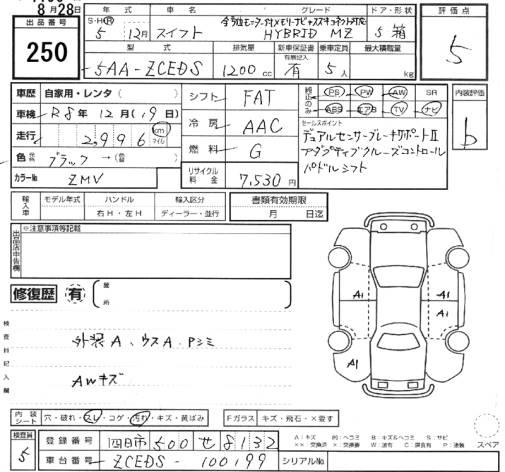 8月28日
出品番号
250
年式 車名 グレード ドア・形状
S・H・R 5年12月 スイフト HYBRID MZ 5 箱
型式 排気量 新車保証書 有無記入 乗車定員 最大積載量
5AA-ZCEDS 1200cc 有 5人 kg
評価点
5
車歴 自家用・レンタ( )
車検 R8年12月(19日)
走行 2,996 km マイル
色 ブラック→( )
カラーNo ZMV
シフト FAT
冷房 AAC
燃料 G
リサイクル料金 7,530円
PS PW AW SR
ABS エアB TV ナビ
セールスポイント
デュアルセンサーブレーキサポートⅡ
アダプティブクルーズコントロール
パドルシフト
内装評価
b
輸入車 モデル年式 ハンドル 輸入区分
年 右H・左H ディーラー・並行
書類有効期限
月 日迄
出品店申告欄
※注意事項等記載
修復歴 有
箇所
検査員記入欄
外装A、ウスA、Pシミ
AWキズ
A1 A1
A1
A1
内装シート 穴・破れ・スレ・コゲ・汚れ・キズ・黄ばみ
Fガラス キズ・飛石・×要す
検査員
5
登録番号 四日市500せ8132
車台番号 ZCEDS-100199
シリアルNo.
スペア